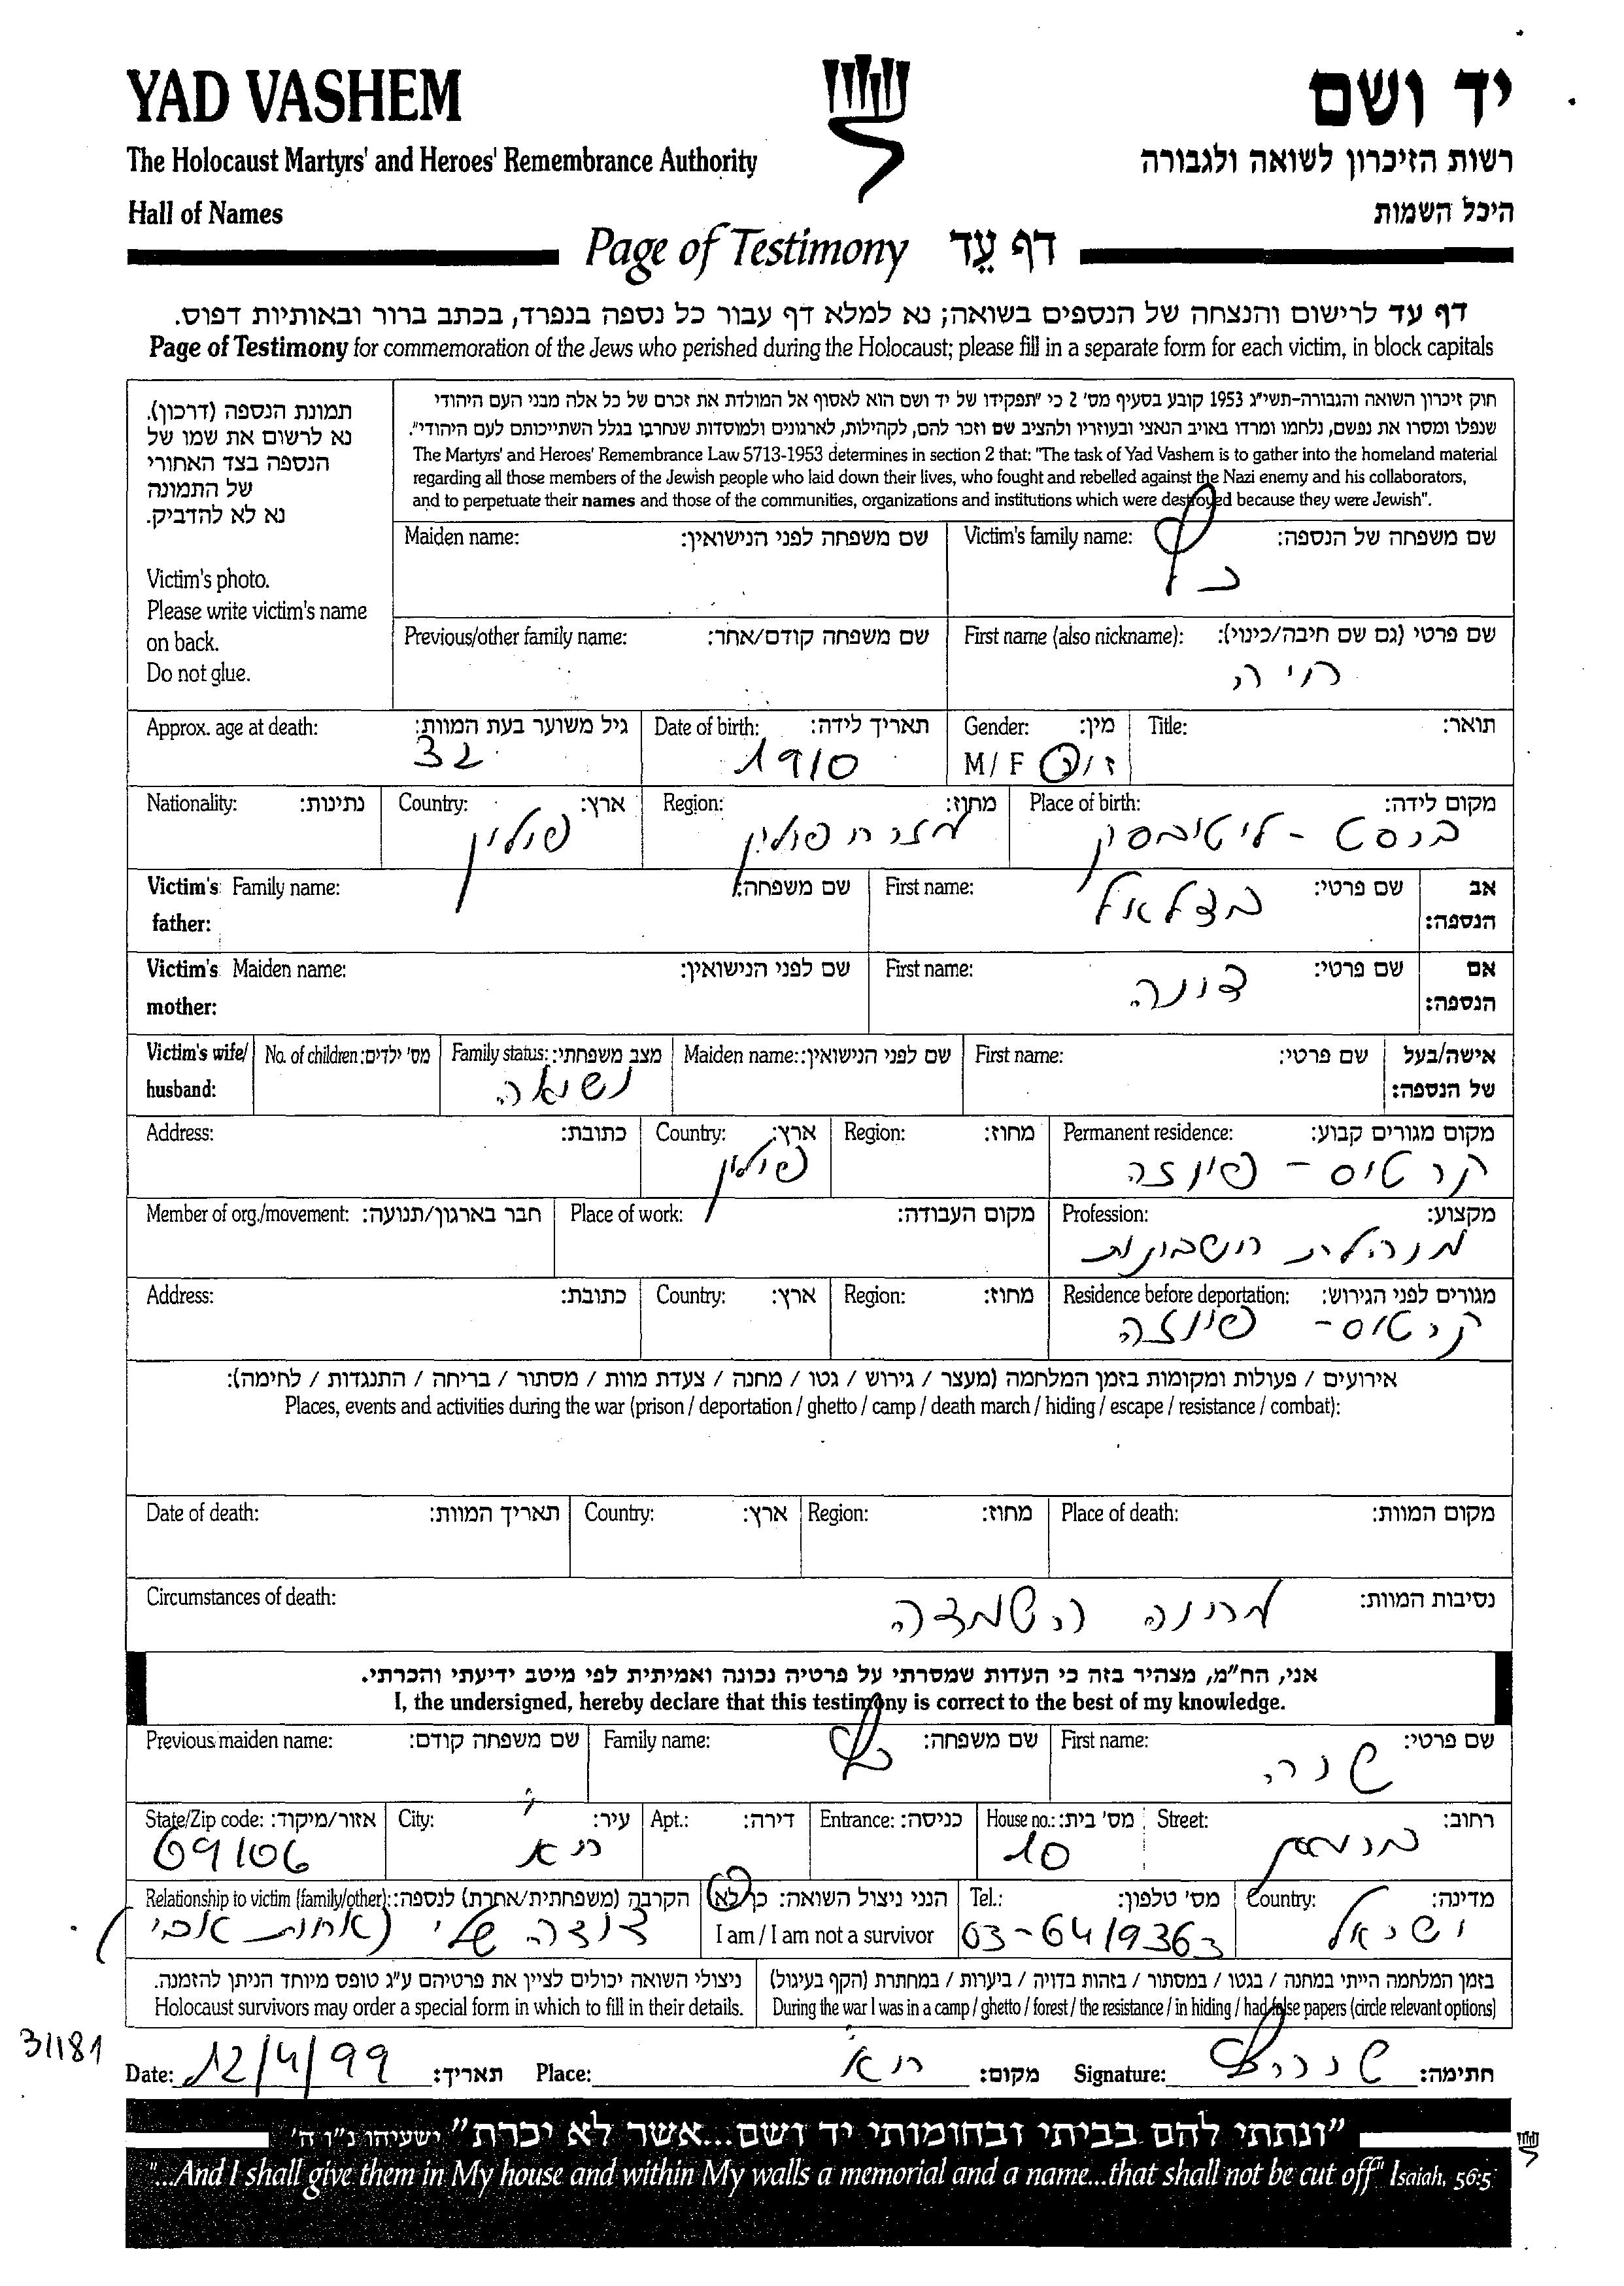 YAD VASHEM
יד ושם
The Holocaust Martyrs' and Heroes' Remembrance Authority
רשות הזיכרון לשואה ולגבורה
Hall of Names
היכל השמות
Page of Testimony דף עֵד
דף עד לרישום והנצחה של הנספים בשואה; נא למלא דף עבור כל נספה בנפרד, בכתב ברור ובאותיות דפוס.
Page of Testimony for commemoration of the Jews who perished during the Holocaust; please fill in a separate form for each victim, in block capitals
תמונת הנספה (דרכון).
נא לרשום את שמו של
הנספה בצד האחורי
של התמונה
נא לא להדביק.
Victim's photo.
Please write victim's name
on back.
Do not glue.
חוק זיכרון השואה והגבורה-תשי"ג 1953 קובע בסעיף מס' 2 כי "תפקידו של יד ושם הוא לאסוף אל המולדת את זכרם של כל אלה מבני העם היהודי
שנפלו ומסרו את נפשם, נלחמו ומרדו באויב הנאצי ובעוזריו ולהציב שם וזכר להם, לקהילות, לארגונים ולמוסדות שנחרבו בגלל השתייכותם לעם היהודי".
The Martyrs' and Heroes' Remembrance Law 5713-1953 determines in section 2 that: "The task of Yad Vashem is to gather into the homeland material
regarding all those members of the Jewish people who laid down their lives, who fought and rebelled against the Nazi enemy and his collaborators,
and to perpetuate their names and those of the communities, organizations and institutions which were destroyed because they were Jewish".
Victim's family name: שם משפחה של הנספה:
כץ
Maiden name: שם משפחה לפני הנישואין:
First name (also nickname): שם פרטי (גם שם חיבה/כינוי):
חיה
Previous/other family name: שם משפחה קודם/אחר:
Title: תואר:
Gender: מין:
M / F ז/נ
Date of birth: תאריך לידה:
1910
Approx. age at death: גיל משוער בעת המוות:
32
Place of birth: מקום לידה:
בריסט - ליטובסק
Region: מחוז:
מזרח פולין
Country: ארץ:
פולין
Nationality: נתינות:
Victim's father: אב הנספה:
First name: שם פרטי:
בצלאל
Family name: שם משפחה:
Victim's mother: אם הנספה:
First name: שם פרטי:
Maiden name: שם לפני הנישואין:
Victim's wife/husband: אישה/בעל של הנספה:
First name: שם פרטי:
Maiden name: שם לפני הנישואין:
Family status: מצב משפחתי:
נשואה
No. of children: מס' ילדים:
Permanent residence: מקום מגורים קבוע:
קרטוס - פיוזה
Region: מחוז:
Country: ארץ:
פולין
Address: כתובת:
Profession: מקצוע:
מנהלת חשבונות
Place of work: מקום העבודה:
Member of org./movement: חבר בארגון/תנועה:
Residence before deportation: מגורים לפני הגירוש:
קרטוס - פיוזה
Region: מחוז:
Country: ארץ:
Address: כתובת:
אירועים / פעולות ומקומות בזמן המלחמה (מעצר / גירוש / גטו / מחנה / צעדת מוות / מסתור / בריחה / התנגדות / לחימה):
Places, events and activities during the war (prison / deportation / ghetto / camp / death march / hiding / escape / resistance / combat):
Place of death: מקום המוות:
Region: מחוז:
Country: ארץ:
Date of death: תאריך המוות:
Circumstances of death: נסיבות המוות:
מחנה השמדה
אני, הח"מ, מצהיר בזה כי העדות שמסרתי על פרטיה נכונה ואמיתית לפי מיטב ידיעתי והכרתי.
I, the undersigned, hereby declare that this testimony is correct to the best of my knowledge.
First name: שם פרטי:
שרה
Family name: שם משפחה:
כץ
Previous maiden name: שם משפחה קודם:
Street: רחוב:
House no.: מס' בית:
10
Entrance: כניסה:
Apt.: דירה:
City: עיר:
ת"א
State/Zip code: אזור/מיקוד:
69106
Country: מדינה:
ישראל
Tel.: מס' טלפון:
03-6419363
הנני ניצול השואה: כן/לא
I am / I am not a survivor
Relationship to victim (family/other): הקרבה (משפחתית/אחרת) לנספה:
דודה שלי (אחות אבי)
בזמן המלחמה הייתי במחנה / בגטו / במסתור / בזהות בדויה / ביערות / במחתרת (הקף בעיגול)
During the war I was in a camp / ghetto / forest / the resistance / in hiding / had false papers (circle relevant options)
ניצולי השואה יכולים לציין את פרטיהם ע"ג טופס מיוחד הניתן להזמנה.
Holocaust survivors may order a special form in which to fill in their details.
31181
Date: 12/4/99 תאריך:
Place: ת"א מקום:
Signature: שרה כץ חתימה:
"ונתתי להם בביתי ובחומותי יד ושם...אשר לא יכרת" ישעיהו נ"ו ה'
"...And I shall give them in My house and within My walls a memorial and a name...that shall not be cut off" Isaiah, 56:5